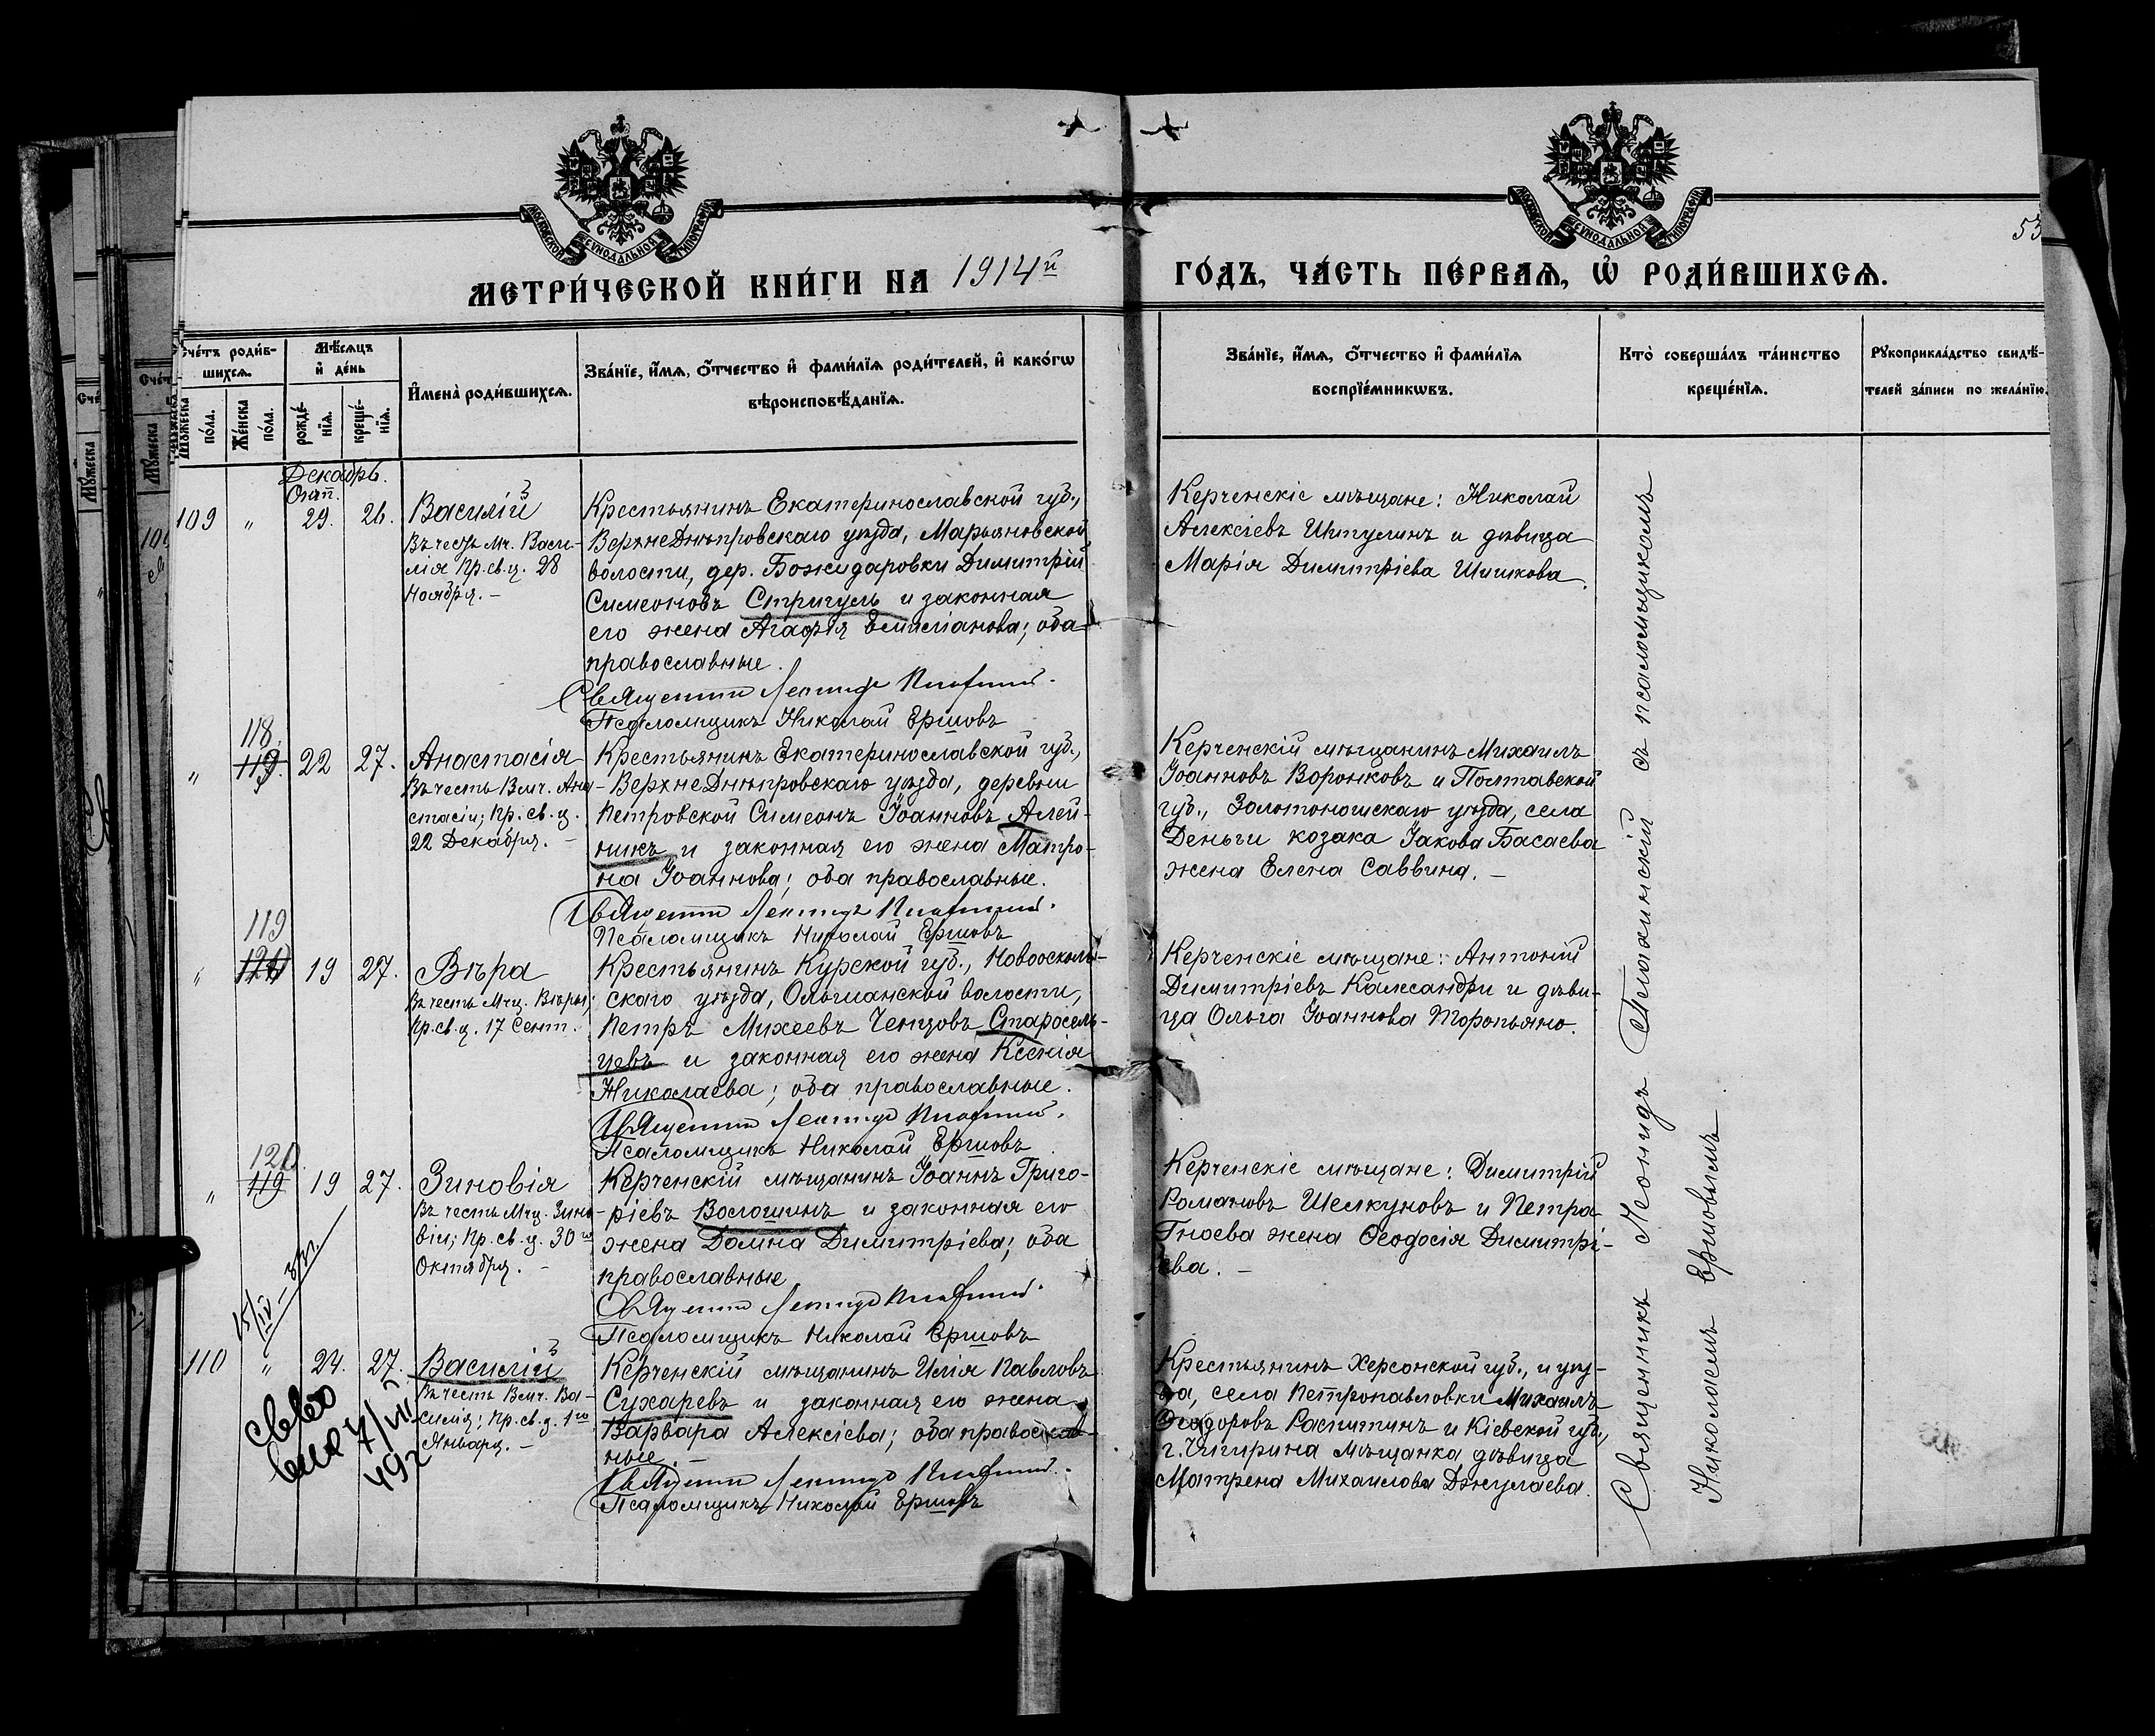 МОСКОВСКОЙ СѴНОДАЛЬНОЙ ТИПОГРАФІИ
МОСКОВСКОЙ СѴНОДАЛЬНОЙ ТИПОГРАФІИ
53
МЕТРИ́ЧЕСКОЙ КНИ́ГИ НА 1914й ГО́ДЪ, ЧА́СТЬ ПЕ́РВАѦ, Ѡ҆ РОДИ́ВШИХСѦ.
Счéтъ роди́в-
шихсѧ.
Мꙋ́жеска
по́ла.
Же́нска
по́ла.
Мѣ́сѧцъ
и҆ де́нь
рожде́-
нїѧ.
креще́-
нїѧ.
И҆мена̀ роди́вшихсѧ.
Зва́нїе, и҆́мѧ, ѻ҆́тчество и҆ фами́лїѧ роди́телей, и҆ како́гѡ
вѣроисповѣ́данїѧ.
Зва́нїе, и҆́мѧ, ѻ҆́тчество и҆ фами́лїѧ
воспрїе́мникѡвъ.
Кто̀ соверша́лъ та́инство
креще́нїѧ.
Рꙋкоприкла́дство свидѣ́-
телей за́писи по жела́нїю.
Декабрь.
Окт.
109 " 29. 26. Василій
Въ честь Мч. Васи-
лія Пр. св. ц. 28
Ноября. -
Крестьянинъ Екатеринославской губ.,
ВерхнеДнѣпровскаго уѣзда, Марьяновской
волости, дер. Божидаровки Димитрій
Симеоновъ Стригуль и законная
его жена Агафія Емиліанова; оба
православные.
Священникъ Леонидъ
Псаломщикъ Николай Ершовъ
Керченскіе мѣщане: Николай
Алексіевъ Шпулинъ и дѣвица
Марія Димитріева Шишкова.
118.
" 119. 22 27. Анастасія
Въ честь Вмч. Ана-
стасіи; Пр. св. ц.
22 Декабря. -
Крестьянинъ Екатеринославской губ.,
ВерхнеДнѣпровскаго уѣзда, деревни
Петровской Симеонъ Іоанновъ Алей-
никъ и законная его жена Матро-
на Іоаннова; оба православные.
Священникъ Леонидъ
Псаломщикъ Николай Ершовъ
Керченскій мѣщанинъ Михаилъ
Іоанновъ Воронковъ и Полтавской
губ., Золотоношскаго уѣзда, села
Деньги козака Іакова Басаева
жена Елена Саввина. -
119
" 120 19 27. Вѣра
Въ честь Мчц. Вѣры;
Пр. св. ц. 17 Сент.
Крестьянинъ Курской губ., Новооскольс-
скаго уѣзда, Ольшанской волости,
Петръ Михеевъ Ченцовъ Старосель-
цевъ и законная его жена Ксенія
Николаева; оба православные.
Священникъ Леонидъ
Псаломщикъ Николай Ершовъ
Керченскіе мѣщане: Антоній
Димитріевъ Калександри и дѣви-
ца Ольга Іоаннова Торопьяно.
120.
" 119 19 27. Зиновія
Въ честь Мчц. Зино-
віи; Пр. св. ц. 30го
Октября. -
Керченскій мѣщанинъ Іоаннъ Григо-
ріевъ Волошинъ и законная его
жена Домна Димитріева; оба
православные
Священникъ Леонидъ
Псаломщикъ Николай Ершовъ
Керченскіе мѣщане: Димитрій
Романовъ Шелкуновъ и Петра
Гноева жена Ѳеодосія Димитрі-
ева. -
110 " 24. 27. Василій
Въ честь Вмч. Ва-
силія; Пр. св. ц. 1го
Января. -
Керченскій мѣщанинъ Илія Павловъ
Сухаревъ и законная его жена
Варвара Алексіева; оба православ-
ные. -
Священникъ Леонидъ
Псаломщикъ Николай Ершовъ
Крестьянинъ Херсонской губ., и уѣз-
да, села Петропавловки Михаилъ
Ѳеодоровъ Распитинъ и Кіевской губ.,
г. Чигирина мѣщанка дѣвица
Матрена Михаилова Джулаева.
Священникъ Леонидъ съ псаломщикомъ
Николаемъ Ершовымъ